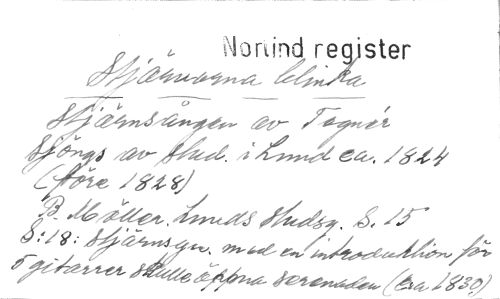 Norlind register
Stjärnorna blinka
Stjärnsången av Tegnér
Sjöngs av stud. i Lund ca. 1824
(före 1828)
B. Möller, Lunds Studsg. S. 15
S:18: Stjärnsgn. med en introduktion för
5 gitarrer skulle öppna serenaden (ca 1830)